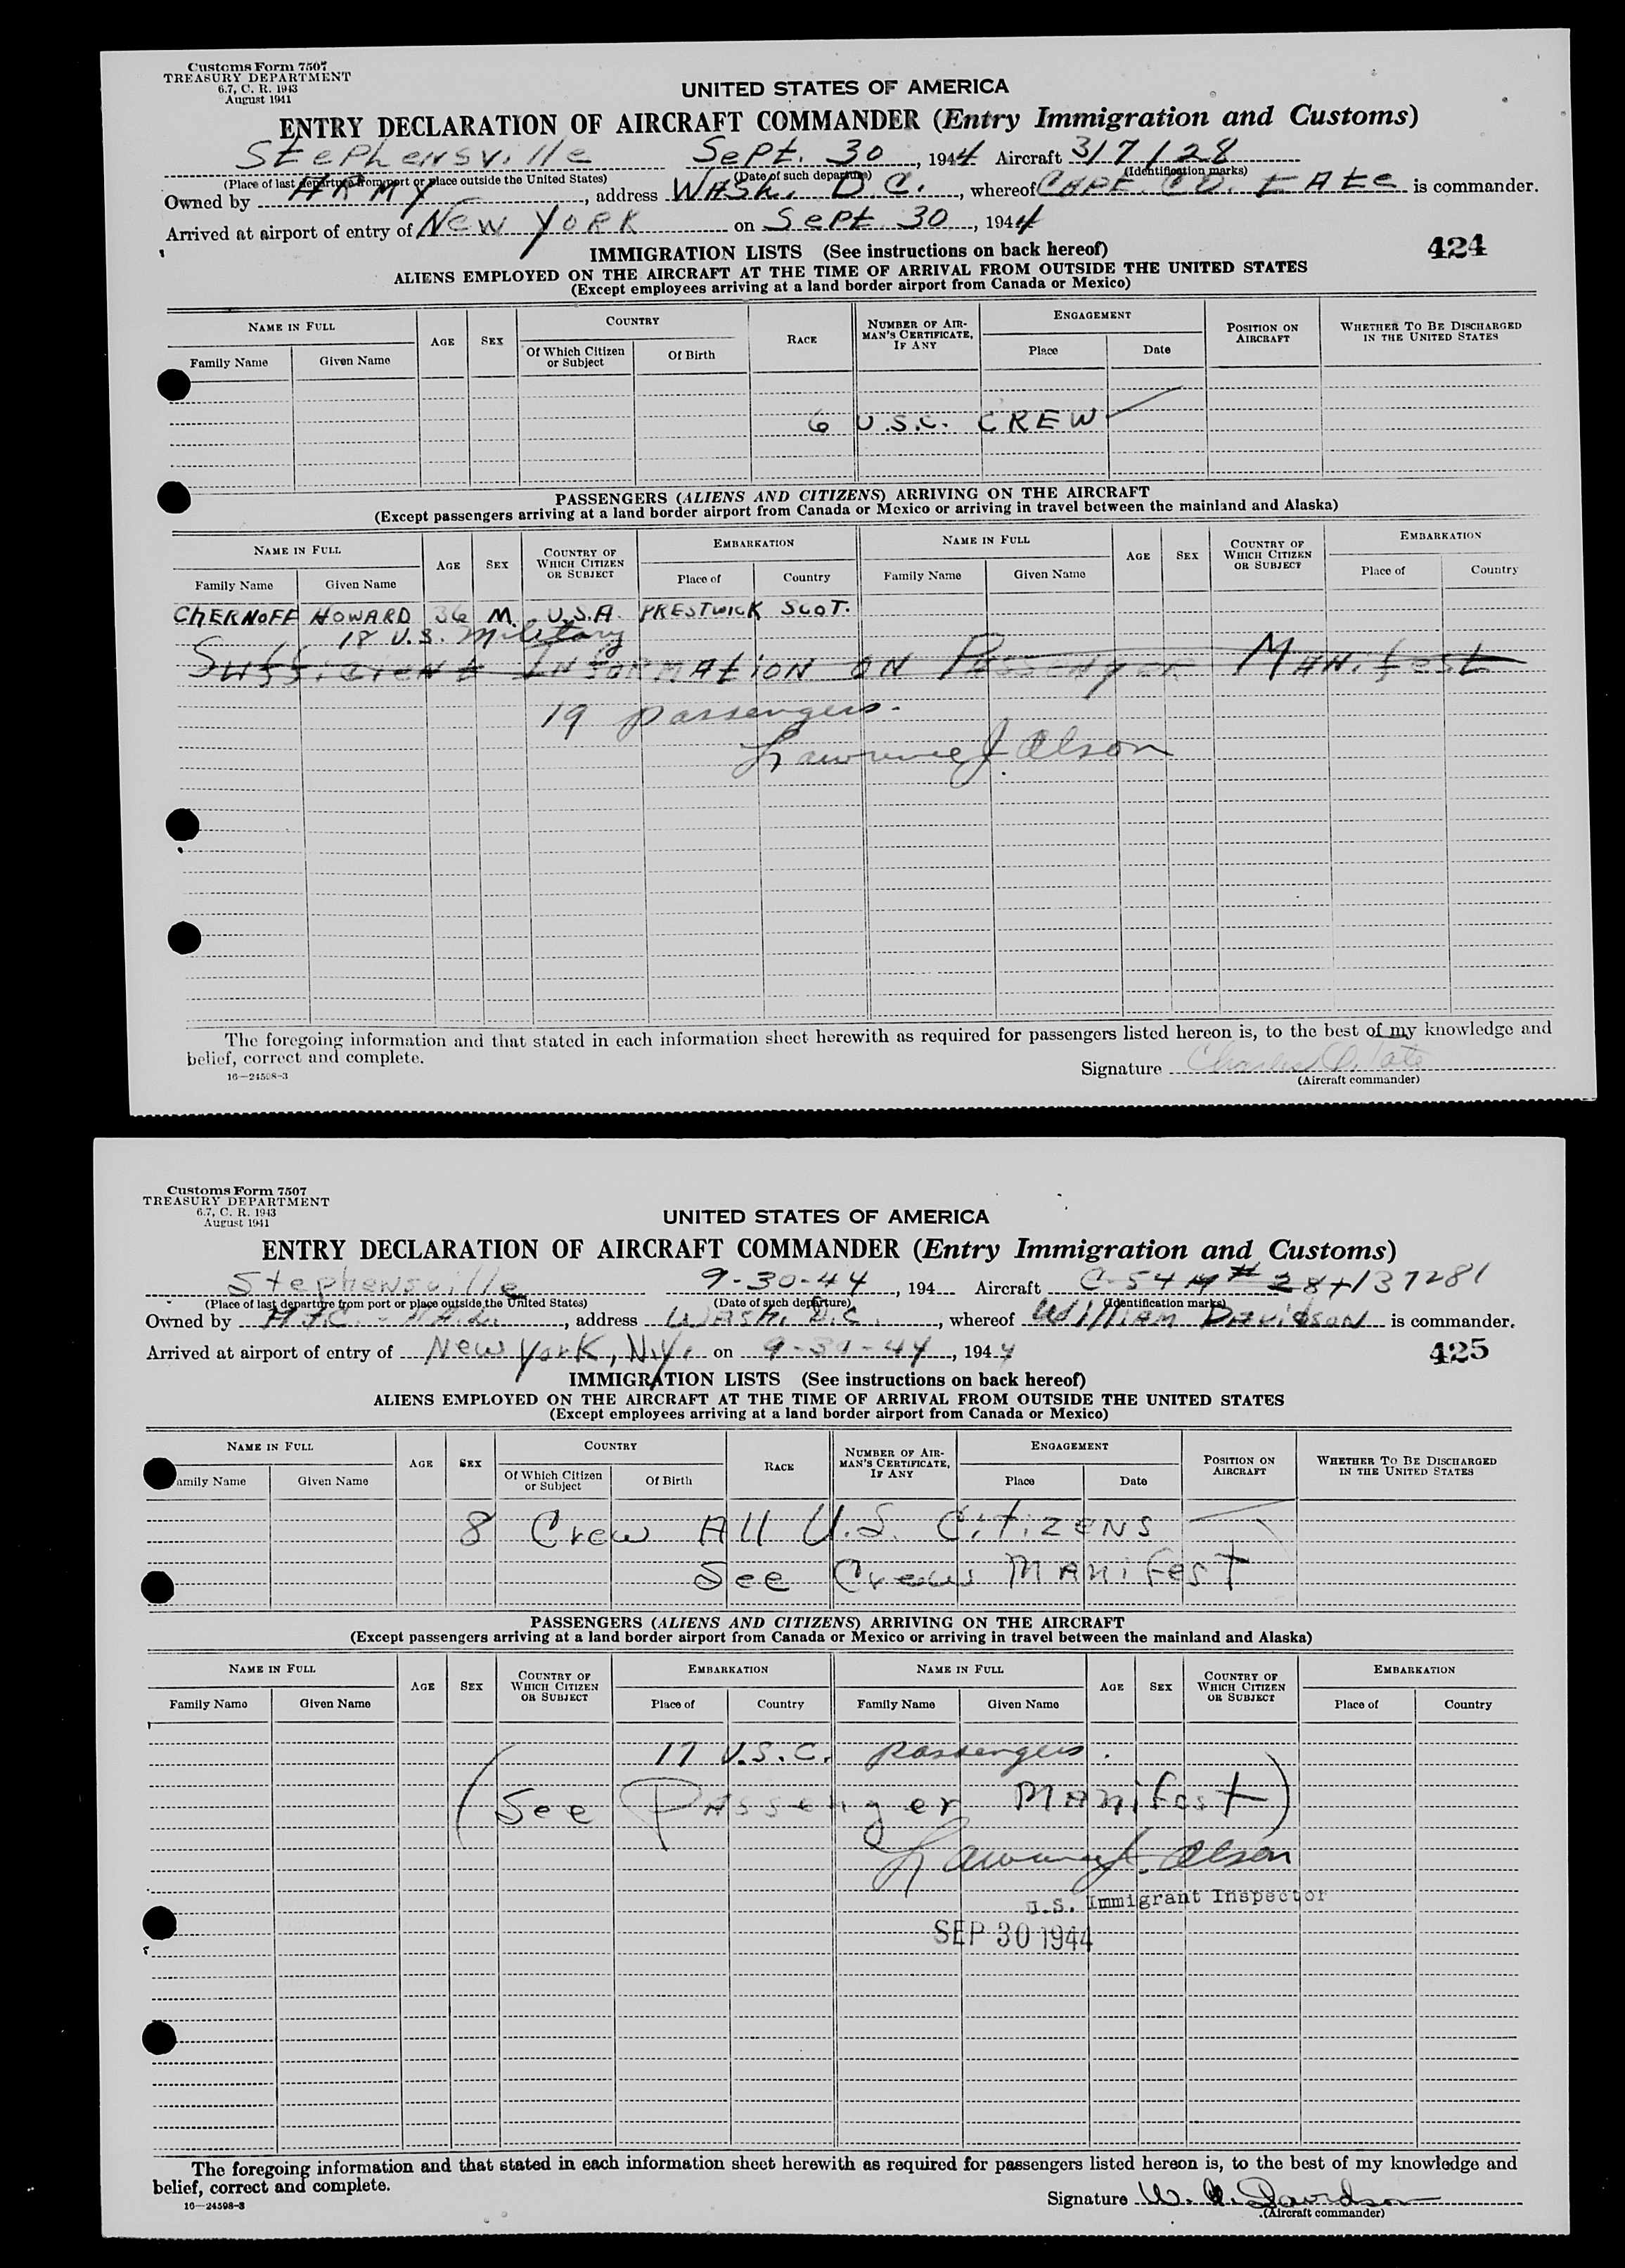 Customs Form 7507
TREASURY DEPARTMENT
6.7, C. R. 1943
August 1941
UNITED STATES OF AMERICA
ENTRY DECLARATION OF AIRCRAFT COMMANDER (Entry Immigration and Customs)
Stephensville Sept. 30, 1944 Aircraft 317128
(Place of last departure from port or place outside the United States) (Date of such departure) (Identification marks)
Owned by ARMY, address WASh. D.C., whereof CAPt. CO. tAte is commander.
Arrived at airport of entry of New York on Sept 30, 1944
IMMIGRATION LISTS (See instructions on back hereof) 424
ALIENS EMPLOYED ON THE AIRCRAFT AT THE TIME OF ARRIVAL FROM OUTSIDE THE UNITED STATES
(Except employees arriving at a land border airport from Canada or Mexico)
NAME IN FULL AGE SEX COUNTRY RACE NUMBER OF AIRMAN'S CERTIFICATE, IF ANY ENGAGEMENT POSITION ON AIRCRAFT WHETHER TO BE DISCHARGED IN THE UNITED STATES
Family Name Given Name Of Which Citizen or Subject Of Birth Place Date
6 U.S.C. CREW
PASSENGERS (ALIENS AND CITIZENS) ARRIVING ON THE AIRCRAFT
(Except passengers arriving at a land border airport from Canada or Mexico or arriving in travel between the mainland and Alaska)
NAME IN FULL AGE SEX COUNTRY OF WHICH CITIZEN OR SUBJECT EMBARKATION NAME IN FULL AGE SEX COUNTRY OF WHICH CITIZEN OR SUBJECT EMBARKATION
Family Name Given Name Place of Country Family Name Given Name Place of Country
ChERNOFF HOWARD 36 M. U.S.A. PRESTWICK SCOT.
18 U.S. Military
Sufficient Information on Passenger Manifest
19 passengers.
Lawrence J. Olson
The foregoing information and that stated in each information sheet herewith as required for passengers listed hereon is, to the best of my knowledge and
belief, correct and complete.
Signature Charles O. Tate
16—24598-3 (Aircraft commander)
Customs Form 7507
TREASURY DEPARTMENT
6.7, C. R. 1943
August 1941
UNITED STATES OF AMERICA
ENTRY DECLARATION OF AIRCRAFT COMMANDER (Entry Immigration and Customs)
Stephensville 9-30-44, 194 Aircraft C-54 # 137281
(Place of last departure from port or place outside the United States) (Date of such departure) (Identification marks)
Owned by, address Wash. D.C., whereof William Davidson is commander.
Arrived at airport of entry of New York, N.Y. on 9-30-44, 1944
425
IMMIGRATION LISTS (See instructions on back hereof)
ALIENS EMPLOYED ON THE AIRCRAFT AT THE TIME OF ARRIVAL FROM OUTSIDE THE UNITED STATES
(Except employees arriving at a land border airport from Canada or Mexico)
NAME IN FULL AGE SEX COUNTRY RACE NUMBER OF AIRMAN'S CERTIFICATE, IF ANY ENGAGEMENT POSITION ON AIRCRAFT WHETHER TO BE DISCHARGED IN THE UNITED STATES
amily Name Given Name Of Which Citizen or Subject Of Birth Place Date
8 Crew All U.S. Citizens
See Crews Manifest
PASSENGERS (ALIENS AND CITIZENS) ARRIVING ON THE AIRCRAFT
(Except passengers arriving at a land border airport from Canada or Mexico or arriving in travel between the mainland and Alaska)
NAME IN FULL AGE SEX COUNTRY OF WHICH CITIZEN OR SUBJECT EMBARKATION NAME IN FULL AGE SEX COUNTRY OF WHICH CITIZEN OR SUBJECT EMBARKATION
Family Name Given Name Place of Country Family Name Given Name Place of Country
17 U.S.C. passengers.
(See Passenger Manifest)
Lawrence J. Olson
U.S. Immigrant Inspector
SEP 30 1944
The foregoing information and that stated in each information sheet herewith as required for passengers listed hereon is, to the best of my knowledge and
belief, correct and complete.
16—24598-3
Signature W. A. Davidson
(Aircraft commander)